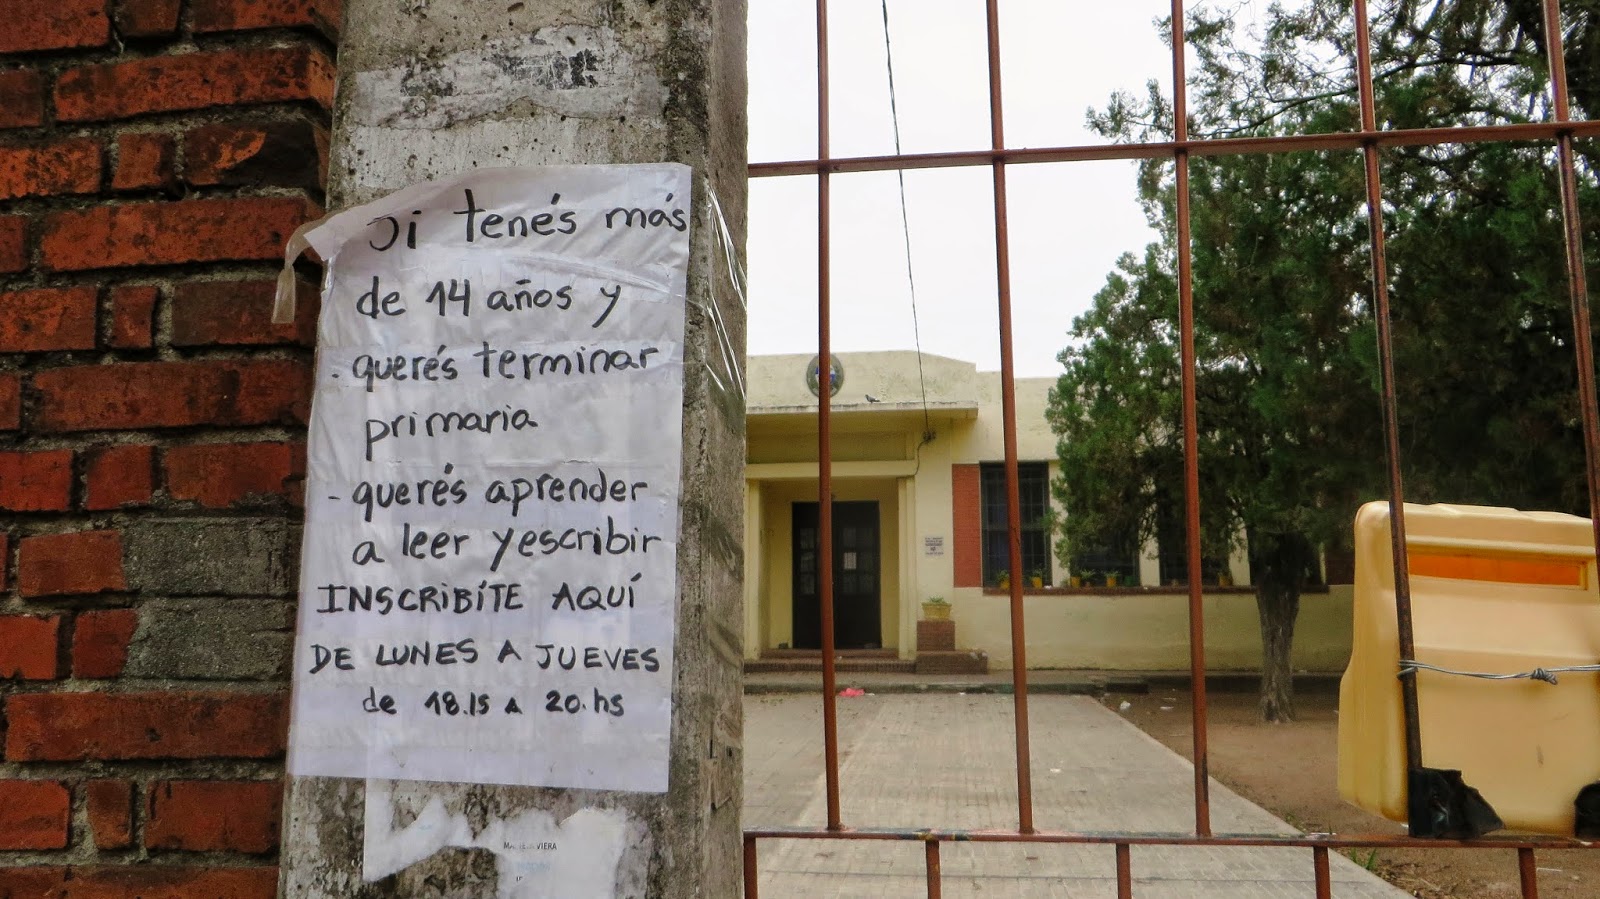 Si tenés más
de 14 años y
- querés terminar
primaria
- querés aprender
a leer y escribir
INSCRIBÍTE AQUÍ
DE LUNES A JUEVES
de 18.15 A 20.hs
VIERA